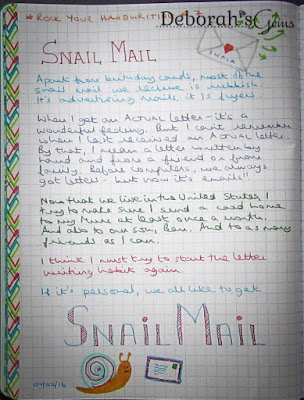 #ROCK YOUR HANDWRITING
Deborah's Gems
SNAIL MAIL
Apart from birthday cards, most of the
snail mail we receive is rubbish.
It's advertising mails, it is flyers.
When I get an Actual letter - it's a
wonderful feeling. But I can't remember
when I last received an Actual Letter
By that, I mean a letter written by
hand and from a friend or from
family. Before computers, we always
got letters - but now it's emails!!
Now that we live in the United States, I
try to make sure I send a card home
to my Mum at least once a month.
And also to our son, Ben. And to as many
friends as I can.
I think I must try to start the letter
writing habit again.
If it's personal, we all like to get
SNAIL MAIL
04/04/16